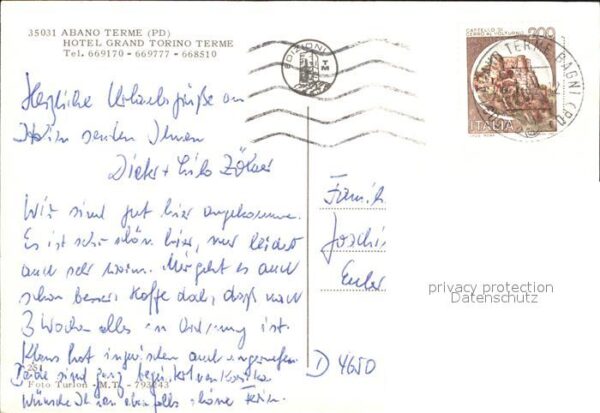 35031 ABANO TERME (PD)
HOTEL GRAND TORINO TERME
Tel. 669170 - 669777 - 668510
EDIZIONI
TM
CASTELLO DI
CERRO AL VOLTURNO 200
ABANO TERME BAGNI (PD)
ITALIA
Herzliche Urlaubsgrüße aus
Italien senden Ihnen
Dieter +
Wir sind gut hier angekommen.
Es ist sehr schön hier, nur leider
auch sehr warm. Mir geht es auch
schon besser, hoffe doch, daß nach
3 Wochen alles in Ordnung ist.
Klaus hat inzwischen auch angerufen
Beide sind ganz begeistert von Korsika
Wünsche Ihnen ebenfalls schöne Ferien.
Familie
Joachim
D 4650
privacy protection
Datenschutz
251
Foto Turlon - M.T. - 793243